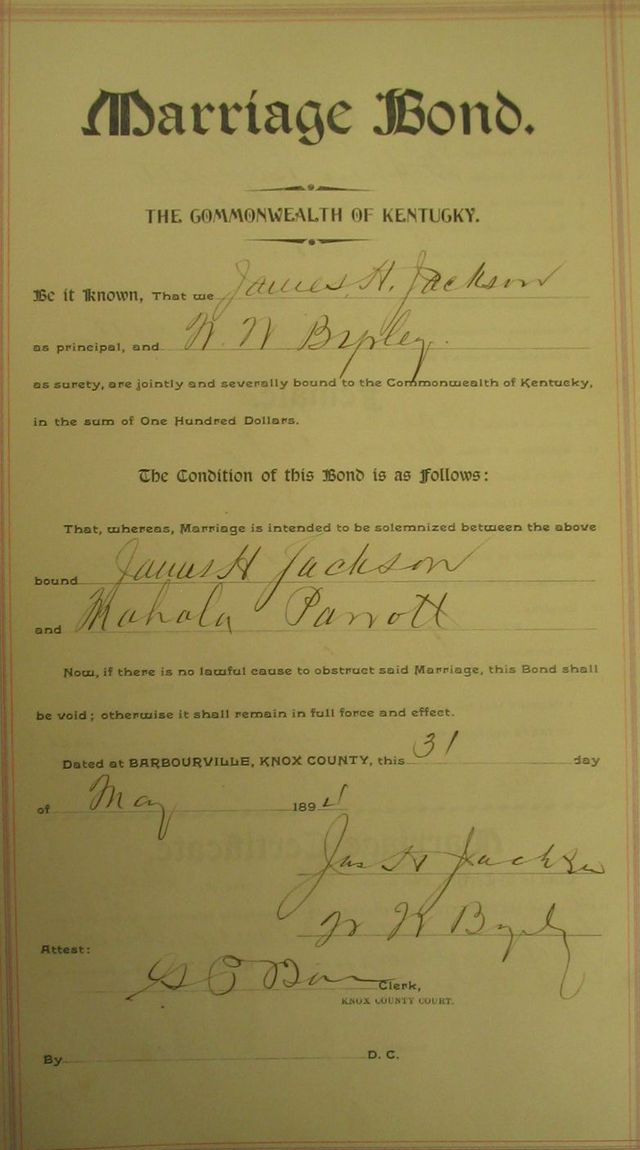 Marriage Bond.
THE COMMONWEALTH OF KENTUCKY.
Be it Known, That we James. H. Jackson
as principal, and W. W Bypley.
as surety, are jointly and severally bound to the Commonwealth of Kentucky,
in the sum of One Hundred Dollars.
The Condition of this Bond is as Follows:
That, whereas, Marriage is intended to be solemnized between the above
bound James H Jackson
and Mahala Parrott
Now, if there is no lawful cause to obstruct said Marriage, this Bond shall
be void; otherwise it shall remain in full force and effect.
Dated at BARBOURVILLE, KNOX COUNTY, this 31 day
of May 1894
Jas H Jackson
W W
Attest:
Clerk,
KNOX COUNTY COURT.
By D. C.